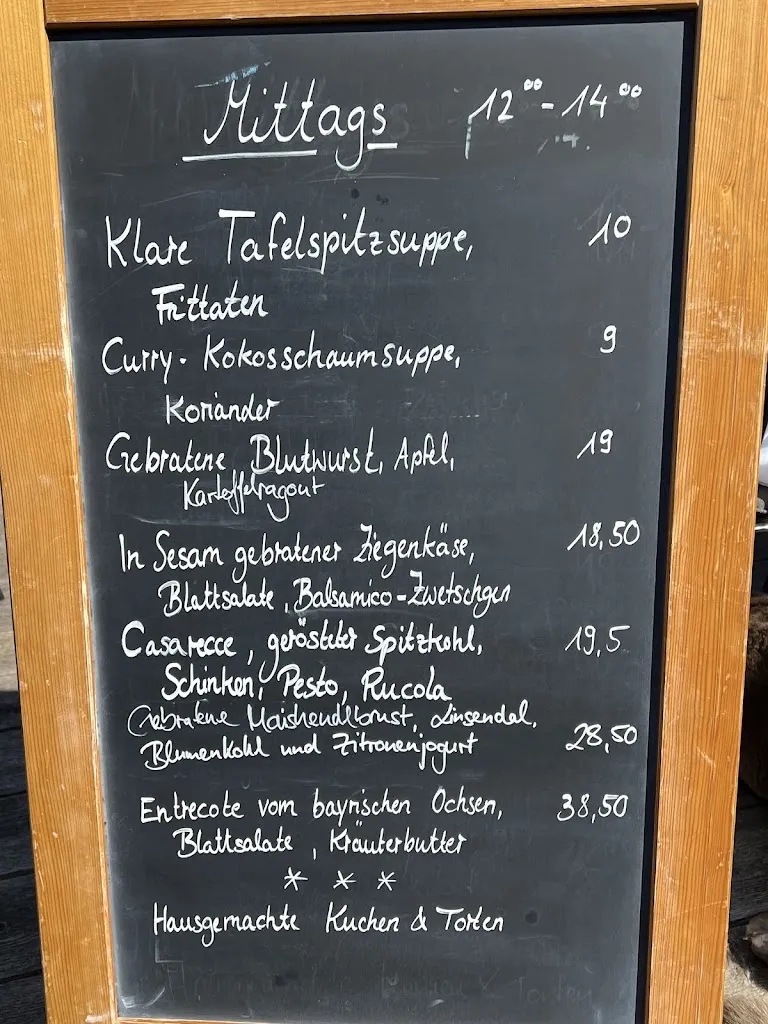 Mittags 12⁰⁰ - 14⁰⁰
Klare Tafelspitzsuppe, 10
Frittaten
Curry- Kokosschaumsuppe, 9
Koriander
Gebratene Blutwurst, Apfel, 19
Kartoffelragout
In Sesam gebratener Ziegenkäse, 18,50
Blattsalate, Balsamico-Zwetschgen
Casarecce, gerösteter Spitzkohl, 19,5
Schinken, Pesto, Rucola
Gebratene Maishendlbrust, Linsendal, 28,50
Blumenkohl und Zitronenjogurt
Entrecote vom bayrischen Ochsen, 38,50
Blattsalate, Kräuterbutter
* * *
Hausgemachte Kuchen & Torten